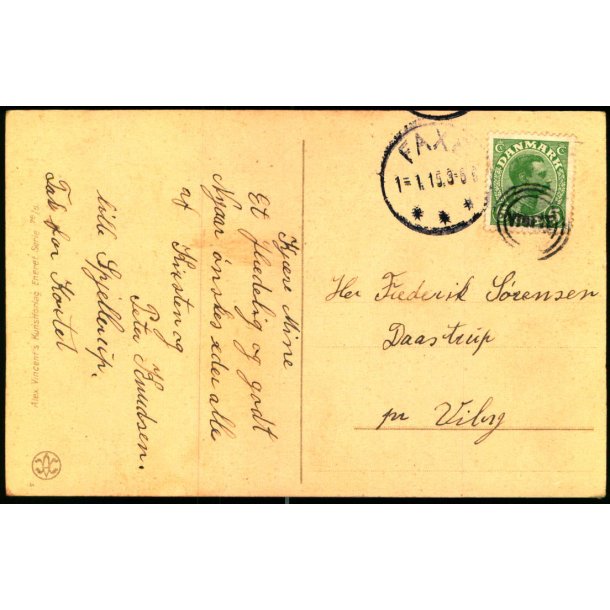 Kjære Mine
Et Glædelig og godt
Nyaar ønskes eder alle
af Kirsten og
Peter Knudsen.
lille Spjellerup.
Tak for Kortet
Alex. Vincent's Kunstforlag Eneret. Serie
FAX
1=1.15.3-6 E
DANMARK
VIBEK
Her Frederik Sørensen
Daastrup
pr Viby